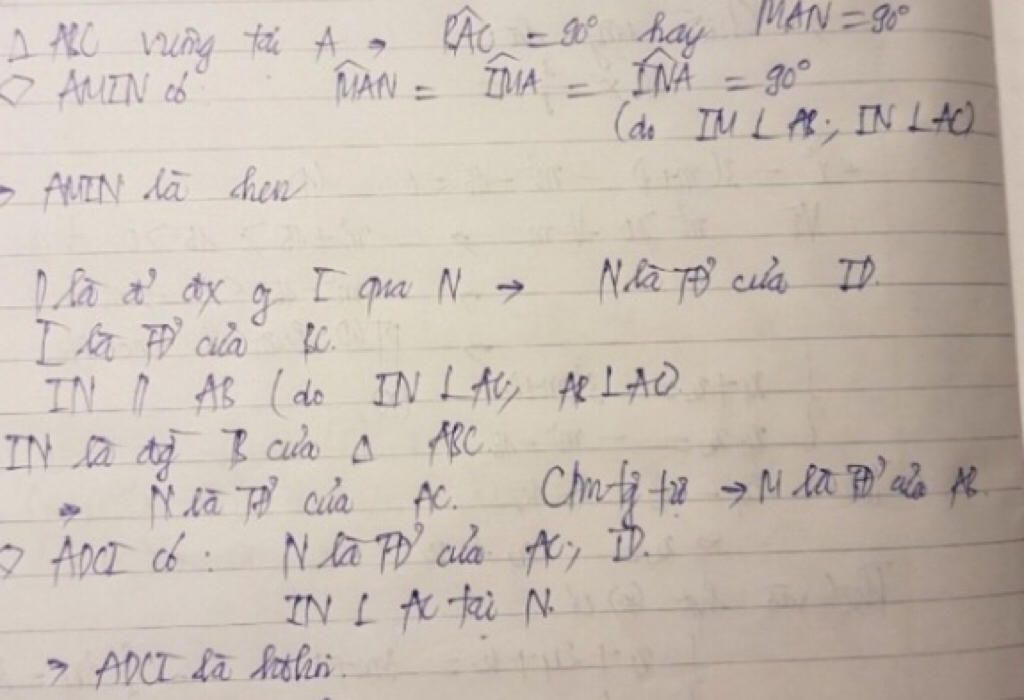 Δ ABC vuông tại A → BAC = 90° hay MAN = 90°
◇ AMIN có MAN = IMA = INA = 90°
(do IM ⊥ AB; IN ⊥ AC)
→ AMIN là hcn
D là đ' đx q I qua N → N là TĐ' của ID.
I là TĐ' của BC.
IN // AB (do IN ⊥ AC, AB ⊥ AC)
IN là đg TB của Δ ABC.
→ N là TĐ' của AC. Cm tg tự → M là TĐ' của AB
◇ ADCI có: N là TĐ' của AC, ID.
IN ⊥ AC tại N.
→ ADCI là hthoi.